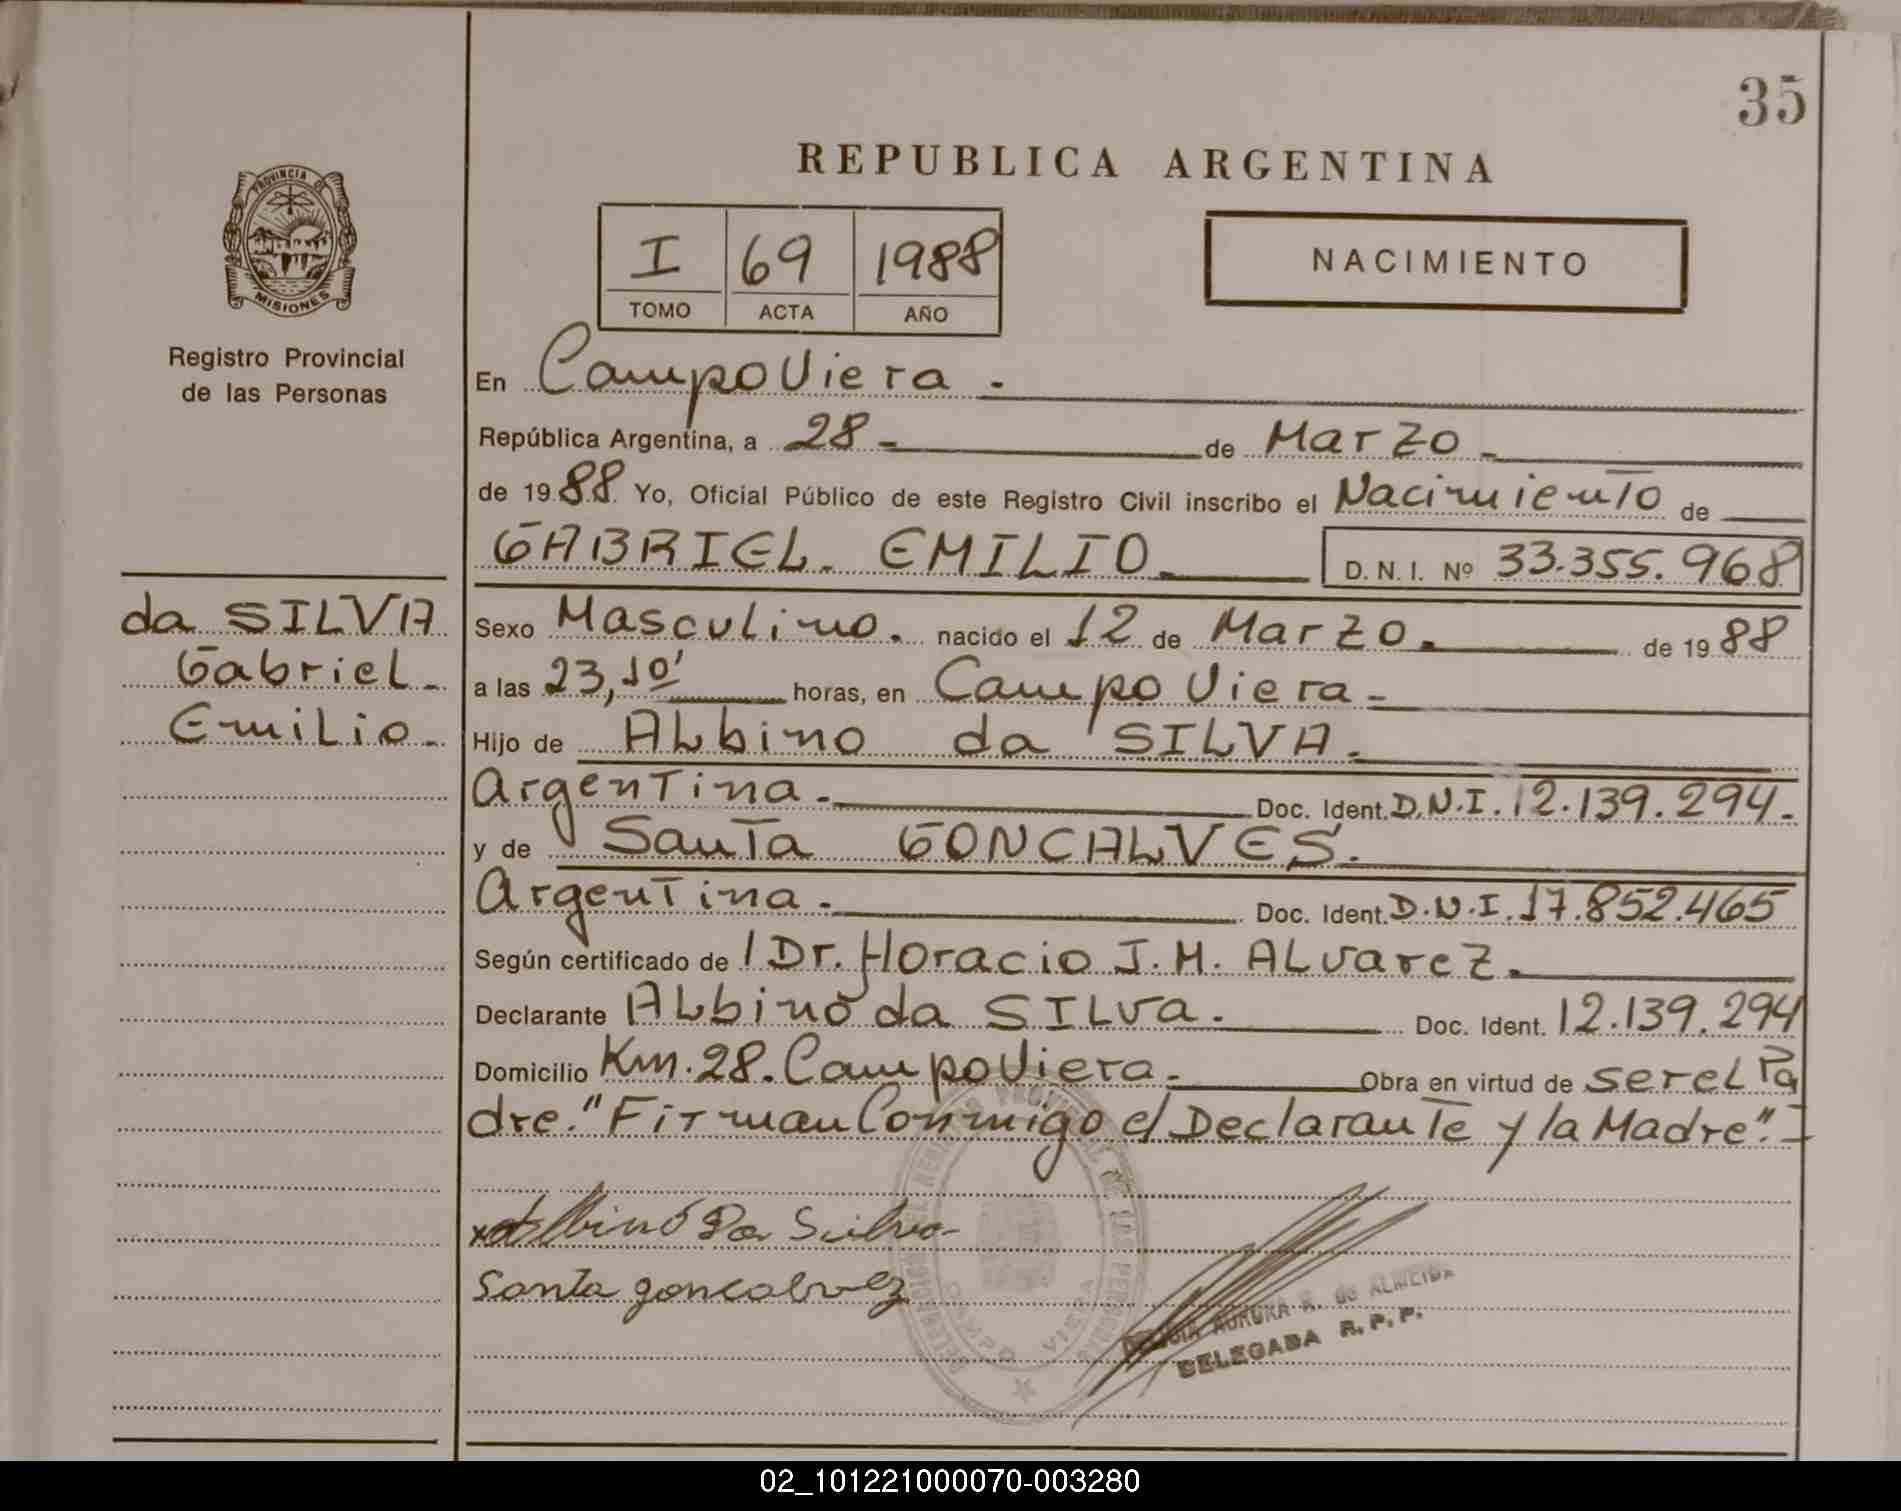 35
REPUBLICA ARGENTINA
PROVINCIA DE
MISIONES
I 69 1988
TOMO ACTA AÑO
NACIMIENTO
Registro Provincial
de las Personas
En Campo Viera.
República Argentina, a 28 - de Marzo -
de 1988. Yo, Oficial Público de este Registro Civil inscribo el Nacimiento de
GABRIEL EMILIO D. N. I. Nº 33.355.968
da SILVA
Gabriel
Emilio
Sexo Masculino. nacido el 12 de Marzo. de 1988
a las 23,10' horas, en Campo Viera -
Hijo de Albino da SILVA.
Argentina. Doc. Ident. D.N.I. 12.139.294.
y de Santa GONCALVES.
Argentina. Doc. Ident. D.N.I. 17.852.465
Según certificado de / Dr. Horacio J. M. Alvarez.
Declarante Albino da SILVA. Doc. Ident. 12.139.294
Domicilio Km. 28. Campo Viera. Obra en virtud de ser el Pa
dre. "Firman Conmigo el Declarante y la Madre". -
x Albino Da Silva
Santa goncalvez
CAMPO VIERA
AURORA R. de ALMEIDA
DELEGADA R. P. P.
02_101221000070-003280